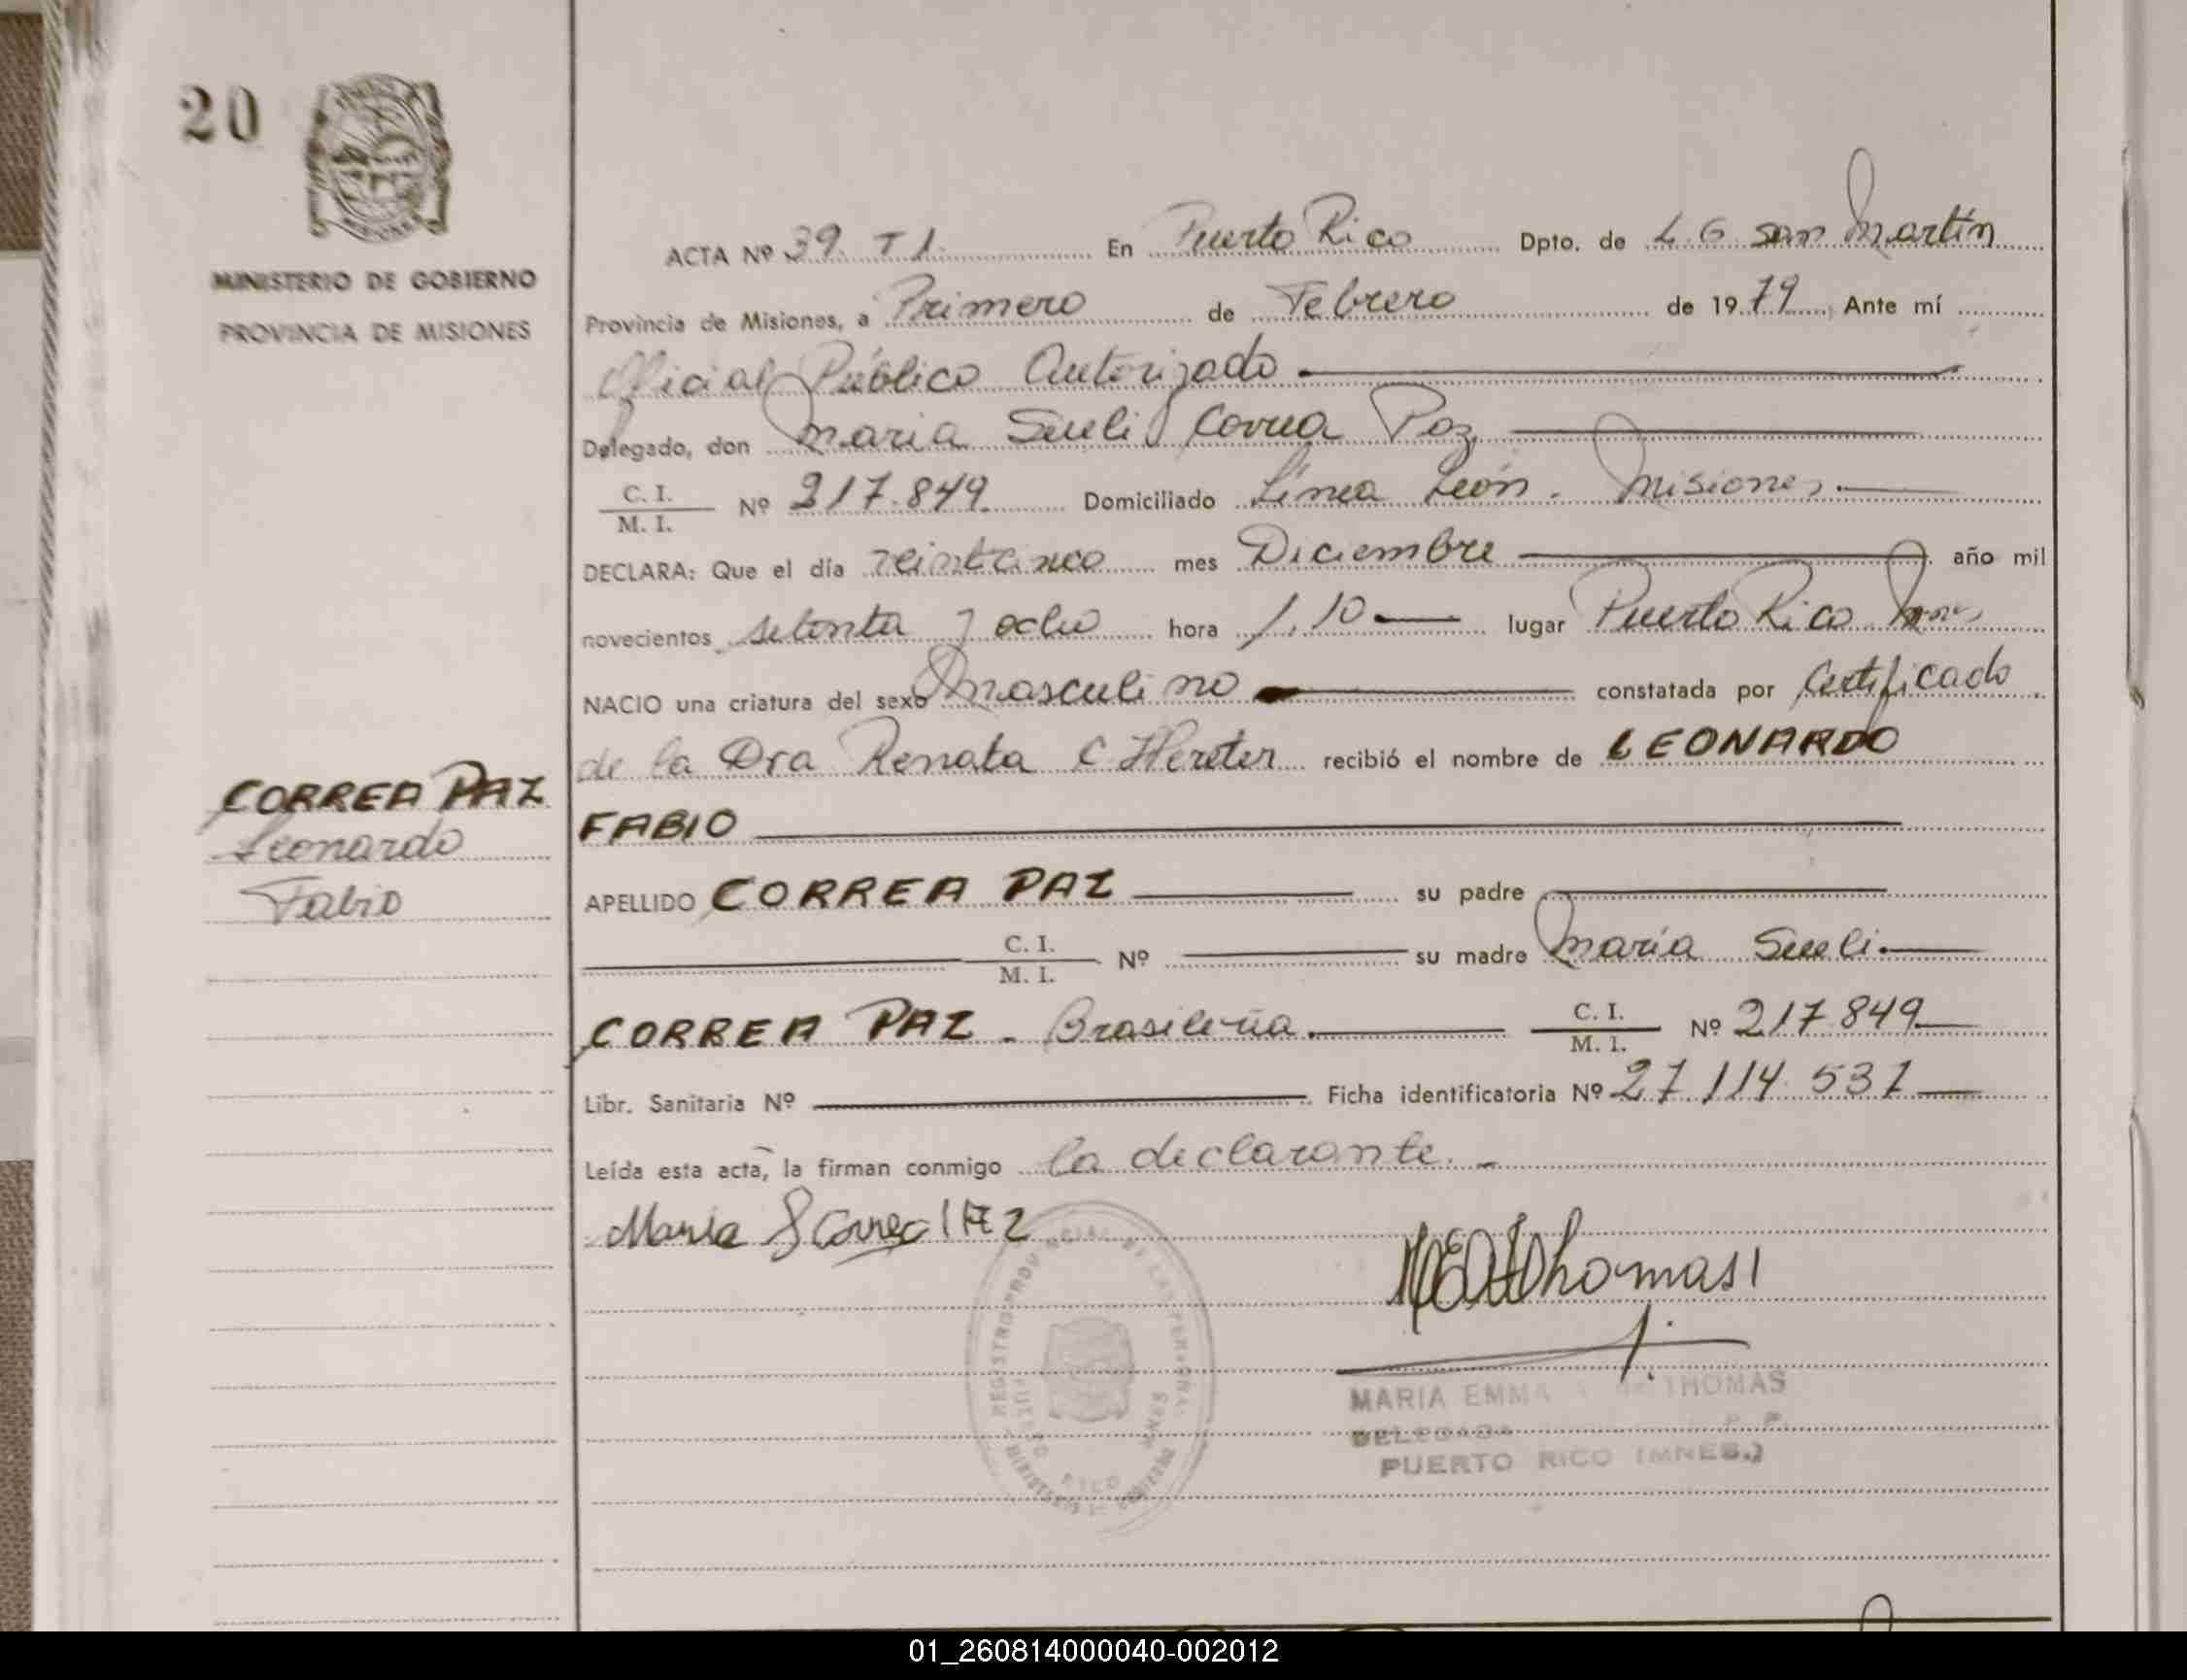 20
MINISTERIO DE GOBIERNO
PROVINCIA DE MISIONES
CORREA PAZ
Leonardo
Fabio
ACTA Nº 39. T 1. En Puerto Rico Dpto. de L. G San Martín
Provincia de Misiones, a Primero de Febrero de 1979, Ante mí
Oficial Público Autorizado
Delegado, don Maria Sueli Correa Paz
C. I. / M. I. Nº 217.849 Domiciliado Línea León. Misiones.
DECLARA: Que el día veinticinco mes Diciembre año mil
novecientos setenta y ocho hora 1.10 lugar Puerto Rico Mnes
NACIO una criatura del sexo Masculino constatada por Certificado
de la Dra Renata C. recibió el nombre de LEONARDO
FABIO
APELLIDO CORREA PAZ su padre
C. I. / M. I. Nº su madre María Sueli.
CORREA PAZ - Brasileña. C. I. / M. I. Nº 217849
Libr. Sanitaria Nº Ficha identificatoria Nº 27.114.531
Leída esta acta, la firman conmigo la declarante. -
Maria S Correa PAZ
Thomas
MARIA EMMA de THOMAS
DELEGADA
PUERTO RICO (MNES.)
REGISTRO PROVINCIAL DE LAS PERSONAS
PUERTO RICO
01_260814000040-002012